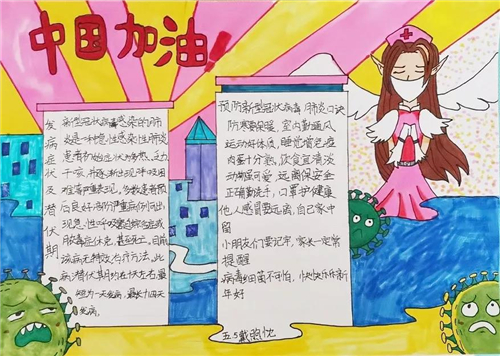 中国加油!
发病症状及潜伏期
新型冠状病毒感染的肺
炎是一种急性感染性肺炎
患者初始症状为发热、乏力
干咳,并逐渐出现呼吸困
难等严重表现,多数患者预
后良好,部分严重病例可出
现急性呼吸窘迫综合征或
脓毒症休克,甚至死亡。目前
该病无特效治疗方法,此
病潜伏期约在7天左右最
短为一天发病,最长十四天
发病。
预防新型冠状病毒肺炎口诀
防寒要保暖,室内勤通风
运动好体质,睡觉皆免疫
肉蛋十分熟,饮食宜清淡
动物虽可爱,远离保安全
正确勤洗手,口罩护健康
他人感冒要远离,自己家中
留
小朋友们要记牢,家长一定常
提醒
病毒细菌不可怕,快快乐乐新
年好
五.5戴